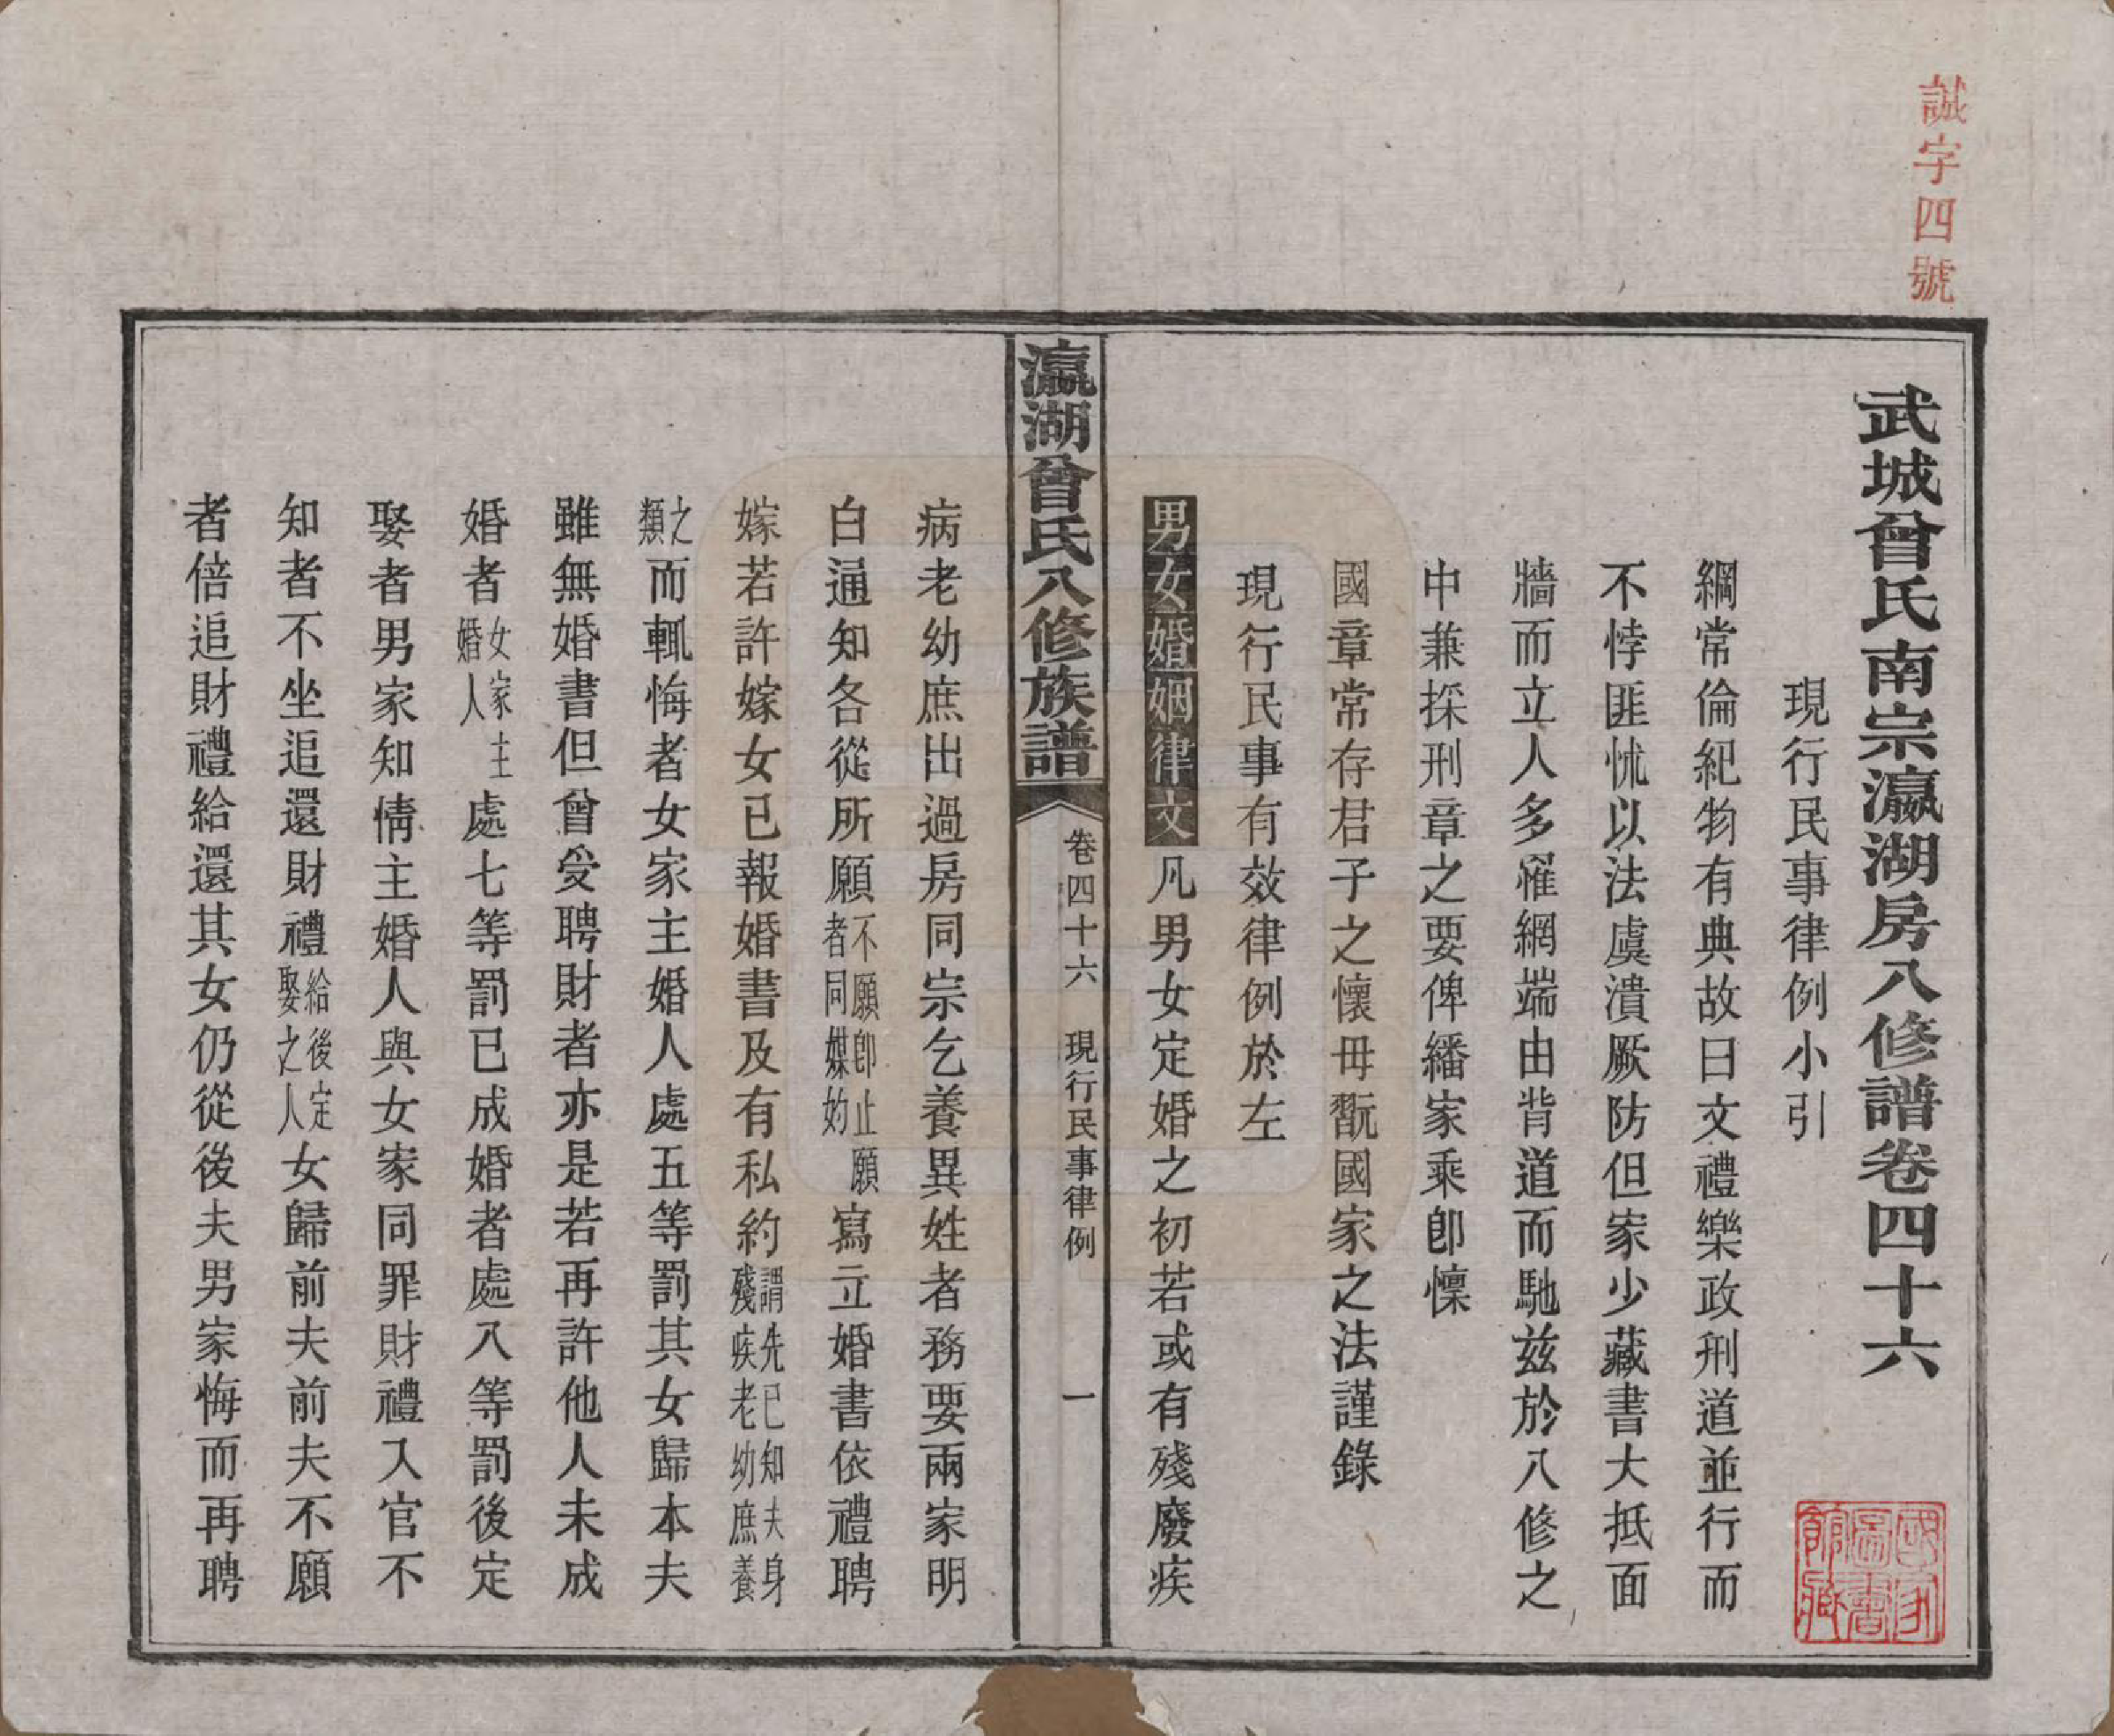 誠字四號
武城曾氏南宗瀛湖房八修譜卷四十六
現行民事律例小引
綱常倫紀物有典故曰文禮樂政刑道並行而
不悖匪怵以法虞潰厥防但家少藏書大抵面
牆而立人多罹網端由背道而馳兹於八修之
中兼採刑章之要俾繙家乘卽懍
國章常存君子之懷毋翫國家之法謹錄
現行民事有效律例於左
男女婚姻律文凡男女定婚之初若或有殘廢疾
瀛湖曾氏八修族譜 卷四十六 現行民事律例 一
病老幼庶出過房同宗乞養異姓者務要兩家明
白通知各從所願不願卽止願者同媒妁寫立婚書依禮聘
嫁若許嫁女已報婚書及有私約謂先已知夫身殘疾老幼庶養
之類而輒悔者女家主婚人處五等罰其女歸本夫
雖無婚書但曾受聘財者亦是若再許他人未成
婚者女家主婚人處七等罰已成婚者處八等罰後定
娶者男家知情主婚人與女家同罪財禮入官不
知者不坐追還財禮給後定娶之人女歸前夫前夫不願
者倍追財禮給還其女仍從後夫男家悔而再聘
國家圖書館藏